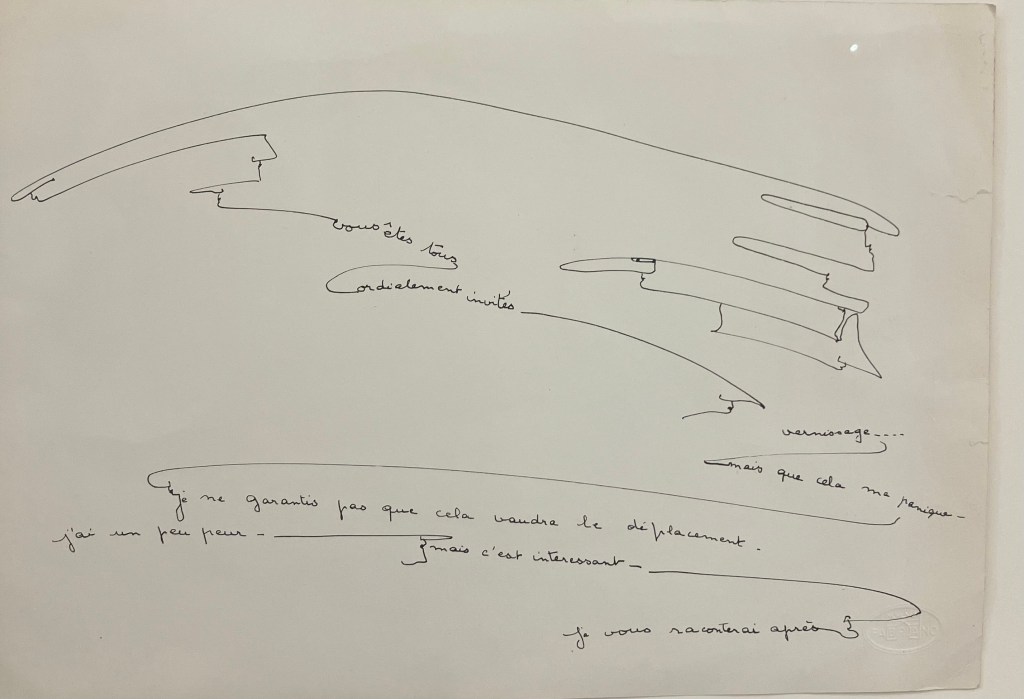 vous êtes tous
Cordialement invités
vernissage----
mais que cela me panique_
je ne garantis pas que cela vaudra le déplacement.
j'ai un peu peur_
mais c'est interessant_
je vous raconterai après